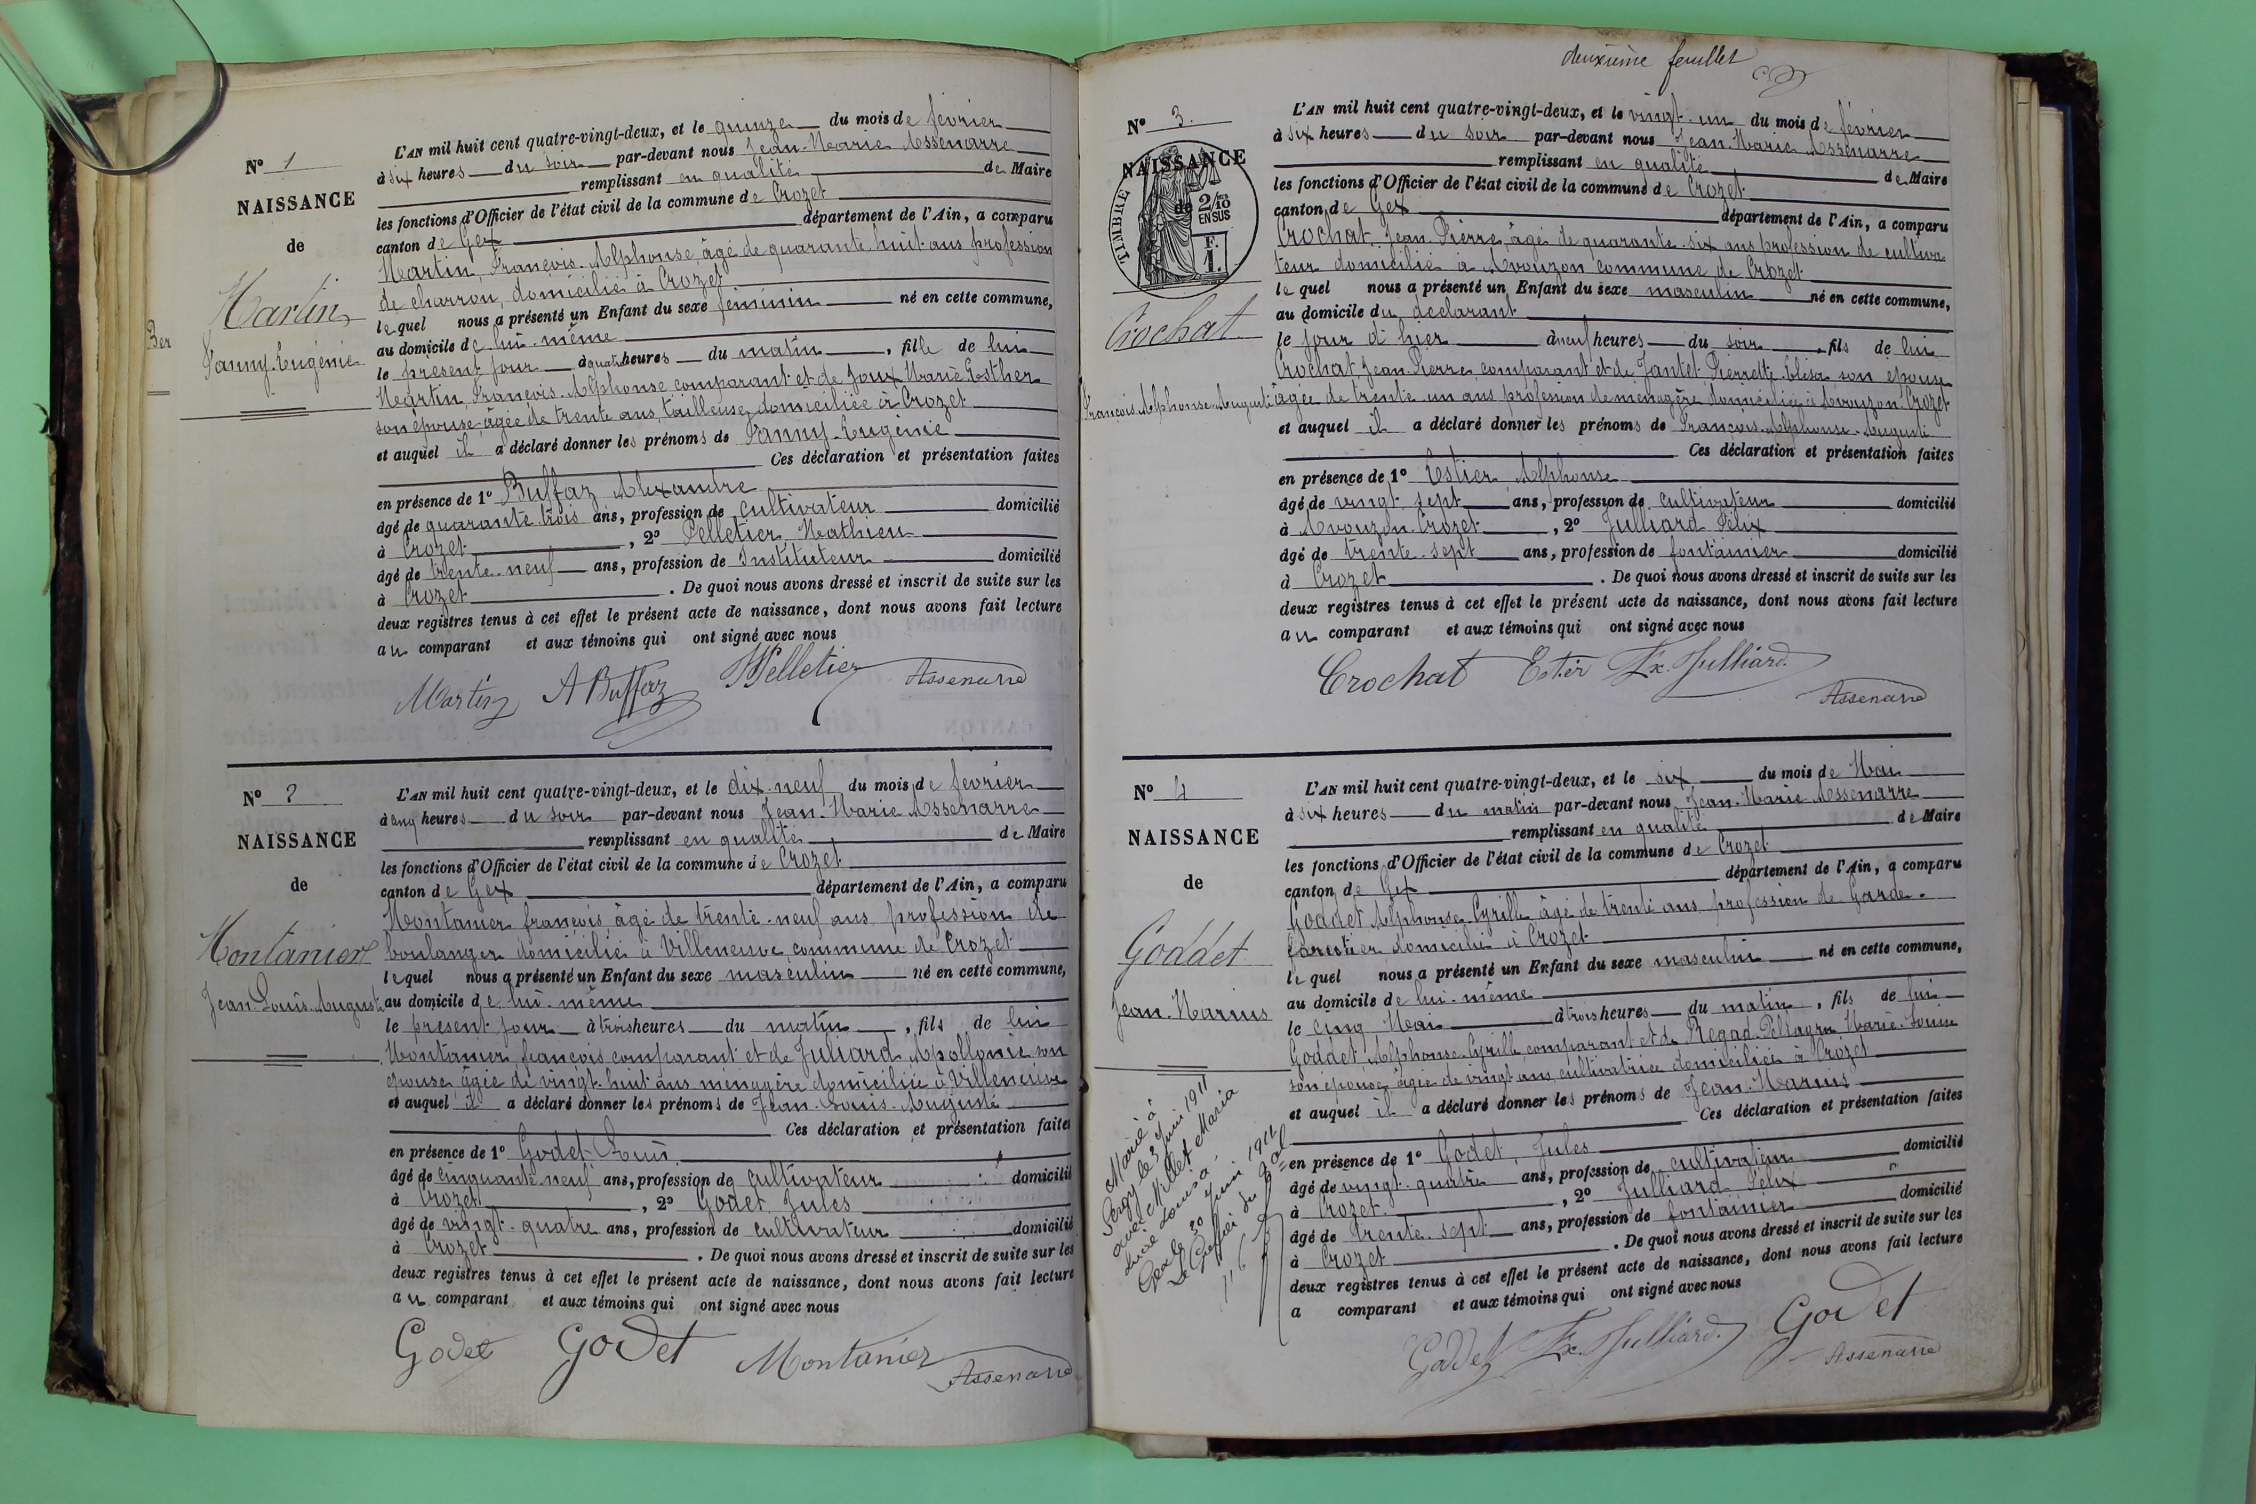 N° 1
NAISSANCE
de
Martin
Fanny-Eugénie
Ber
L'AN mil huit cent quatre-vingt-deux, et le quinze du mois de février
à six heures du soir par-devant nous Jean-Marie Assenarre
remplissant en qualité de Maire
les fonctions d'Officier de l'état civil de la commune de Crozet
canton de Gex département de l'Ain, a comparu
Martin, François-Alphonse, âgé de quarante-huit ans profession
de charron, domicilié à Crozet
lequel nous a présenté un Enfant du sexe féminin né en cette commune,
au domicile de lui-même
le présent jour à quatre heures du matin, fille de lui
Martin, François-Alphonse comparant et de Joux Marie Esther
son épouse âgée de trente ans, tailleuse domiciliée à Crozet
et auquel il a déclaré donner les prénoms de Fanny-Eugénie
Ces déclaration et présentation faites
en présence de 1° Buffaz Alexandre
âgé de quarante trois ans, profession de cultivateur domicilié
à Crozet, 2° Pelletier, Mathieu
âgé de trente-neuf ans, profession de Instituteur domicilié
à Crozet. De quoi nous avons dressé et inscrit de suite sur les
deux registres tenus à cet effet le présent acte de naissance, dont nous avons fait lecture
au comparant et aux témoins qui ont signé avec nous
Martin A Buffaz Pelletier Assenarre
N° 2
NAISSANCE
de
Montanier
Jean-Louis-Auguste
L'AN mil huit cent quatre-vingt-deux, et le dix-neuf du mois de février
à cinq heures du soir par-devant nous Jean-Marie Assenarre
remplissant en qualité de Maire
les fonctions d'Officier de l'état civil de la commune de Crozet
canton de Gex département de l'Ain, a comparu
Montanier françois, âgé de trente-neuf ans profession de
boulanger domicilié à Villeneuve, commune de Crozet
lequel nous a présenté un Enfant du sexe masculin né en cette commune,
au domicile de lui-même
le présent jour à trois heures du matin, fils de lui
Montanier françois comparant et de Juliard Apollonie son
épouse, âgée de vingt-huit ans ménagère domiciliée à Villeneuve
et auquel il a déclaré donner les prénoms de Jean-Louis-Auguste
Ces déclaration et présentation faites
en présence de 1° Godet Louis
âgé de cinquante neuf ans, profession de cultivateur domicilié
à Crozet, 2° Godet Jules
âgé de vingt-quatre ans, profession de cultivateur domicilié
à Crozet. De quoi nous avons dressé et inscrit de suite sur les
deux registres tenus à cet effet le présent acte de naissance, dont nous avons fait lecture
au comparant et aux témoins qui ont signé avec nous
Godet Godet Montanier Assenarre
deuxième feuillet
N° 3
NAISSANCE
de
TIMBRE
2/10
EN SUS
F.
1.
Crochat
François-Alphonse-Auguste
L'AN mil huit cent quatre-vingt-deux, et le vingt-un du mois de février
à six heures du soir par-devant nous Jean-Marie Assenarre
remplissant en qualité de Maire
les fonctions d'Officier de l'état civil de la commune de Crozet
canton de Gex département de l'Ain, a comparu
Crochat, Jean-Pierre, âgé de quarante-six ans profession de cultiva
teur domicilié à Avouzon commune de Crozet
lequel nous a présenté un Enfant du sexe masculin né en cette commune,
au domicile du déclarant
le jour d'hier à neuf heures du soir, fils de lui
Crochat Jean-Pierre, comparant et de Jantet Pierrette-Elisa, son épouse
âgée de trente-un ans profession de ménagère domiciliée à Avouzon-Crozet
et auquel il a déclaré donner les prénoms de François-Alphonse-Auguste
Ces déclaration et présentation faites
en présence de 1° Estier Alphonse
âgé de vingt-sept ans, profession de cultivateur domicilié
à Avouzon-Crozet, 2° Julliard Félix
âgé de trente-sept ans, profession de fontainier domicilié
à Crozet. De quoi nous avons dressé et inscrit de suite sur les
deux registres tenus à cet effet le présent acte de naissance, dont nous avons fait lecture
au comparant et aux témoins qui ont signé avec nous
Crochat Estier Fx. Julliard Assenarre
N° 4
NAISSANCE
de
Goddet
Jean-Marius
Marié à
Pougny le 3 Juin 1911
avec Millet Maria
Lucie Louisa.
Gex le 30 Juin 1911
Le Greffier du Bal
L'AN mil huit cent quatre-vingt-deux, et le six du mois de Mai
à six heures du matin par-devant nous Jean-Marie Assenarre
remplissant en qualité de Maire
les fonctions d'Officier de l'état civil de la commune de Crozet
canton de Gex département de l'Ain, a comparu
Goddet Alphonse-Cyrille âgé de trente ans, profession de Garde-
forestier domicilié à Crozet
lequel nous a présenté un Enfant du sexe masculin né en cette commune,
au domicile de lui-même
le cinq Mai à trois heures du matin, fils de lui
Goddet Alphonse-Cyrille comparant et de Regad-Pellagru Marie-Louise
son épouse âgée de vingt ans, cultivatrice domiciliée à Crozet
et auquel il a déclaré donner les prénoms de Jean-Marius
Ces déclaration et présentation faites
en présence de 1° Godet, Jules
âgé de vingt-quatre ans, profession de cultivateur domicilié
à Crozet, 2° Julliard Félix
âgé de trente sept ans, profession de fontainier domicilié
à Crozet. De quoi nous avons dressé et inscrit de suite sur les
deux registres tenus à cet effet le présent acte de naissance, dont nous avons fait lecture
a comparant et aux témoins qui ont signé avec nous
Godet Fx. Julliard Godet Assenarre